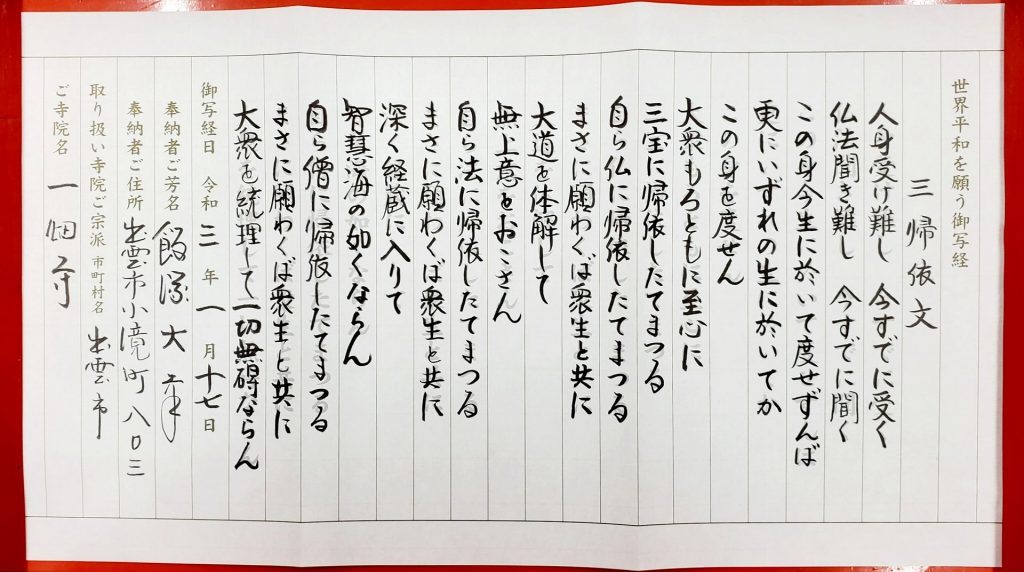 世界平和を願う御写経
三帰依文
人身受け難し 今すでに受く
仏法聞き難し 今すでに聞く
この身今生に於いて度せずんば
更にいずれの生に於いてか
この身を度せん
大衆もろともに至心に
三宝に帰依したてまつる
自ら仏に帰依したてまつる
まさに願わくば衆生と共に
大道を体解して
無上意をおこさん
自ら法に帰依したてまつる
まさに願わくば衆生と共に
深く経蔵に入りて
智慧海の如くならん
自ら僧に帰依したてまつる
まさに願わくば衆生と共に
大衆を統理して一切無碍ならん
御写経日 令和 三 年 一 月 十七 日
奉納者ご芳名 飯塚大幸
奉納者ご住所 出雲市小境町八〇三
取り扱い寺院ご宗派 市町村名 出雲市
ご寺院名 一畑寺